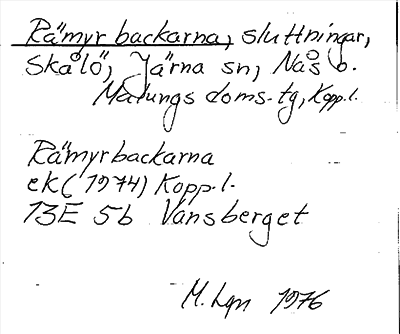 Rämyrbackarna, sluttningar,
Skålö, Järna sn, Nås o.
Malungs doms.tg, Kopp.l.
Rämyrbackarna
ek (1974) Kopp.l.
13E 5b Vansberget
M. Lgn 1976